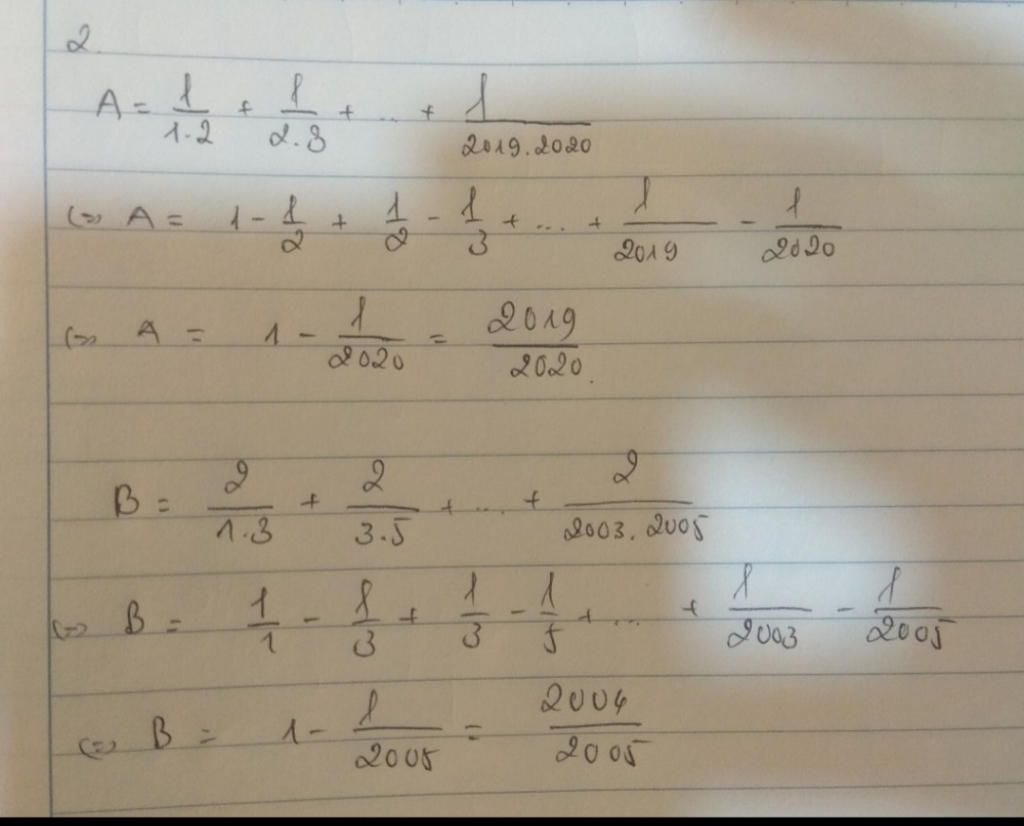 2.
A = 1/1.2 + 1/2.3 + ... + 1/2019.2020
(=) A = 1 - 1/2 + 1/2 - 1/3 + ... + 1/2019 - 1/2020
(=) A = 1 - 1/2020 = 2019/2020.
B = 2/1.3 + 2/3.5 + ... + 2/2003.2005
(=) B = 1/1 - 1/3 + 1/3 - 1/5 + ... + 1/2003 - 1/2005
(=) B = 1 - 1/2005 = 2004/2005